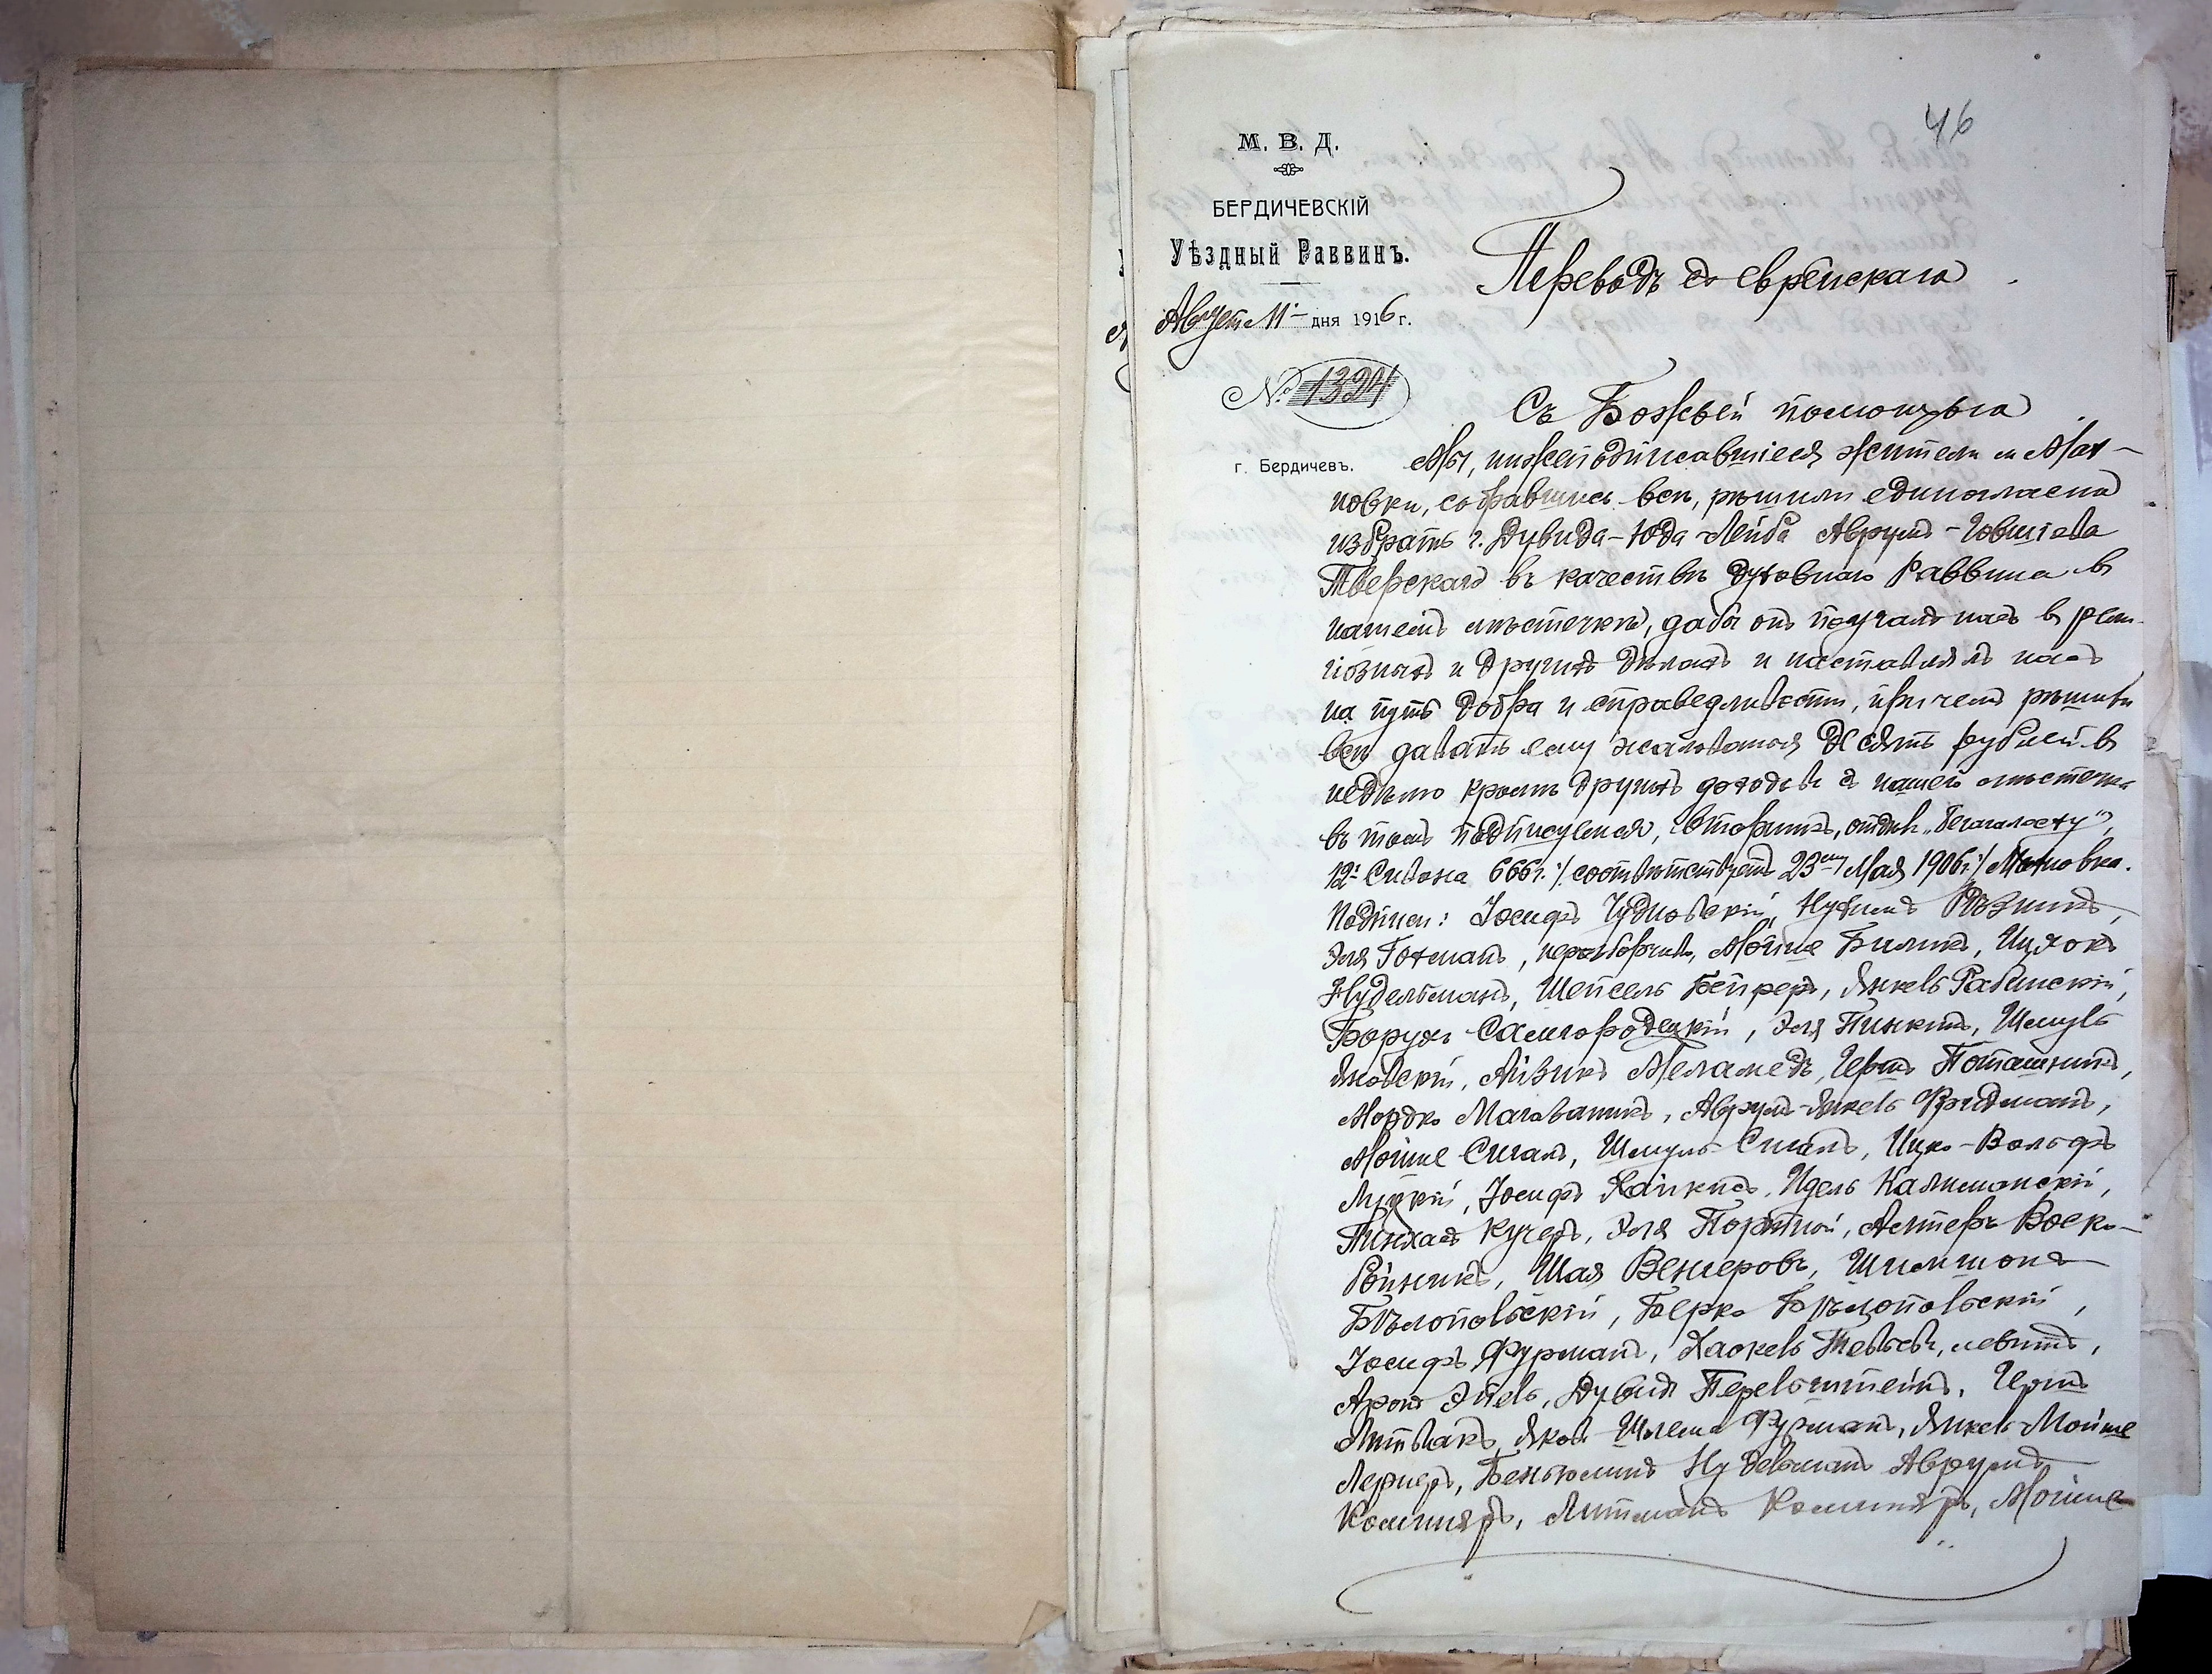 46
М. В. Д.
БЕРДИЧЕВСКІЙ
Уѣздный Раввинъ.
Августа 11 дня 1916 г.
№ 1324
г. Бердичевъ.
Переводъ съ еврейскаго
Съ Божьей помощью
Мы, нижеподписавшіеся жители м. Мах-
новки, собравшись всѣ, рѣшили единогласно
избрать г. Дувида-Юда-Лейба Аврумъ-Іовшіева
Тверскаго въ качествѣ духовнаго Раввина въ
нашемъ мѣстечкѣ, дабы онъ поучалъ насъ въ рели-
гіозныхъ и другихъ дѣлахъ и наставлялъ насъ
на путь добра и справедливости, при чемъ рѣшили
всѣ давать ему жалованья десять рублей въ
недѣлю кромѣ другихъ доходовъ съ нашего мѣстечка
въ томъ подписуемся, Вторникъ, отдѣлъ
12 Сивана 666 г. /соотвѣтствуетъ 23 Мая 1906 г./ Махновка.
Подписи: Іосифъ Чудновскій, Нухимъ Рѣзникъ,
Эля Гохманъ, Мойше Биликъ, Ицхокъ
Нудельманъ, Шепсель Бейдеръ, Янкель Рабинскій,
Борухъ Самгородецкій, Эля Пинкинъ, Шмуль
Яновскій, Айзикъ Меламедъ, Гершъ Поташникъ,
Мордко Аврумъ-Янкель Фридманъ,
Мойше Сигалъ, Шмуль Сигалъ, Ицко-Вольфъ
Луцкій, Іосифъ Хайкисъ, Идель Калиманскій,
Пинхасъ Кучеръ, Эля Портной, Алтеръ Воско-
бойникъ, Шая Венгеровъ, Шимшонъ
Бѣлопольскій, Берко Бѣлопольскій,
Іосифъ Фурманъ, Хаскель левитъ,
Аронъ Дувидъ Перельштейнъ, Гершъ
Литвакъ, Шлема Фурманъ, Янкель-Мойше
Лернеръ, Беньюминъ Нудельманъ, Аврумъ
Коминяръ, Литманъ Коминяръ, Мойше